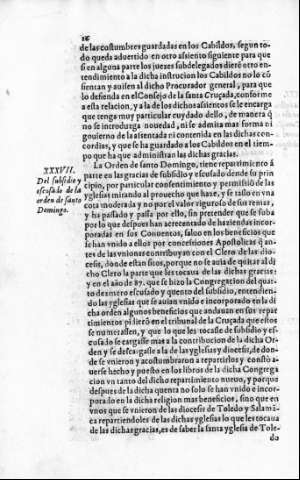 16
de las costumbres guardadas en los Cabildos, segun to
do queda aduertido en otro assiento siguiente para que
si en alguna parte los juezes subdelegados dieré otro en-
tendimiento a la dicha instrucion los Cabildos no lo có
sientan y auisen al dicho Procurador general, para que
lo defienda en el Consejo de la santa Cruzada, conforme
a esta relacion, y a la de los dichos assientos se le encarga
que tenga muy particular cuydado dello, de manera q̃
no se introduzga nouedad, ni se admita mas forma ni
gouierno de la assentada ni contenida en las dichas con-
cordias, y que se ha guardado a los Cabildos en el tiem-
po que ha que administran las dichas gracias.
XXXVII.
Del subsidio y
escusado de la
orden de santo
Domingo.
La Orden de santo Domingo, tiene repartimiento á
parte en las gracias de subsidio y escusado dende su prin
cipio, por particular consentimiento y permissiõ de las
yglesias mirando al prouecho que haze, y se taso en vna
cota moderada y no por el valor riguroso de sus rentas,
y ha passado y passa por ello, sin pretender que se suba
por lo que despues han acrecentado de haziendas incor
poradas en sus Conuentos, saluo en los beneficios que
se han vnido a ellos por concessiones Apostolicas q̃ an-
tes de las vniones contribuyan con el Clero de las dio-
cesis, donde estan sitos, porque no se auia de quitar al di
cho Clero la parte que les tocaua de las dichas gracias:
y en el año de 87. que se hizo la Congregacion del quar
to dezmero escusado y quento del subsidio, entendien-
do las yglesias que se auian vnido e incorporado en la di
cha orden algunos beneficios que andauan en sus repar
timientos pidierõ en el tribunal de la Cruzada que estos
se numerassen, y que lo que les tocasse de subsidio y es-
cusado se cargasse mas a la contribucion de la dicha Or
den y se descargasse a la de las yglesias y diocesis, de don-
de se vnieron y acostumbraron a repartirlos y constó a-
uerse hecho y puesto en los libros de la dicha Congrega
cion vn tanto del dicho repartimiento nueuo, y porque
despues de la dicha quenta no solo se han vnido e incor-
porado a la dicha religion mas beneficios, sino que en
vnos que se vnieron de las diocesis de Toledo y Salamã-
ca repartiendoles de las dichas yglesias lo que les tocaua
de las dichas gracias, es de saber la santa yglesia de Tole-
do